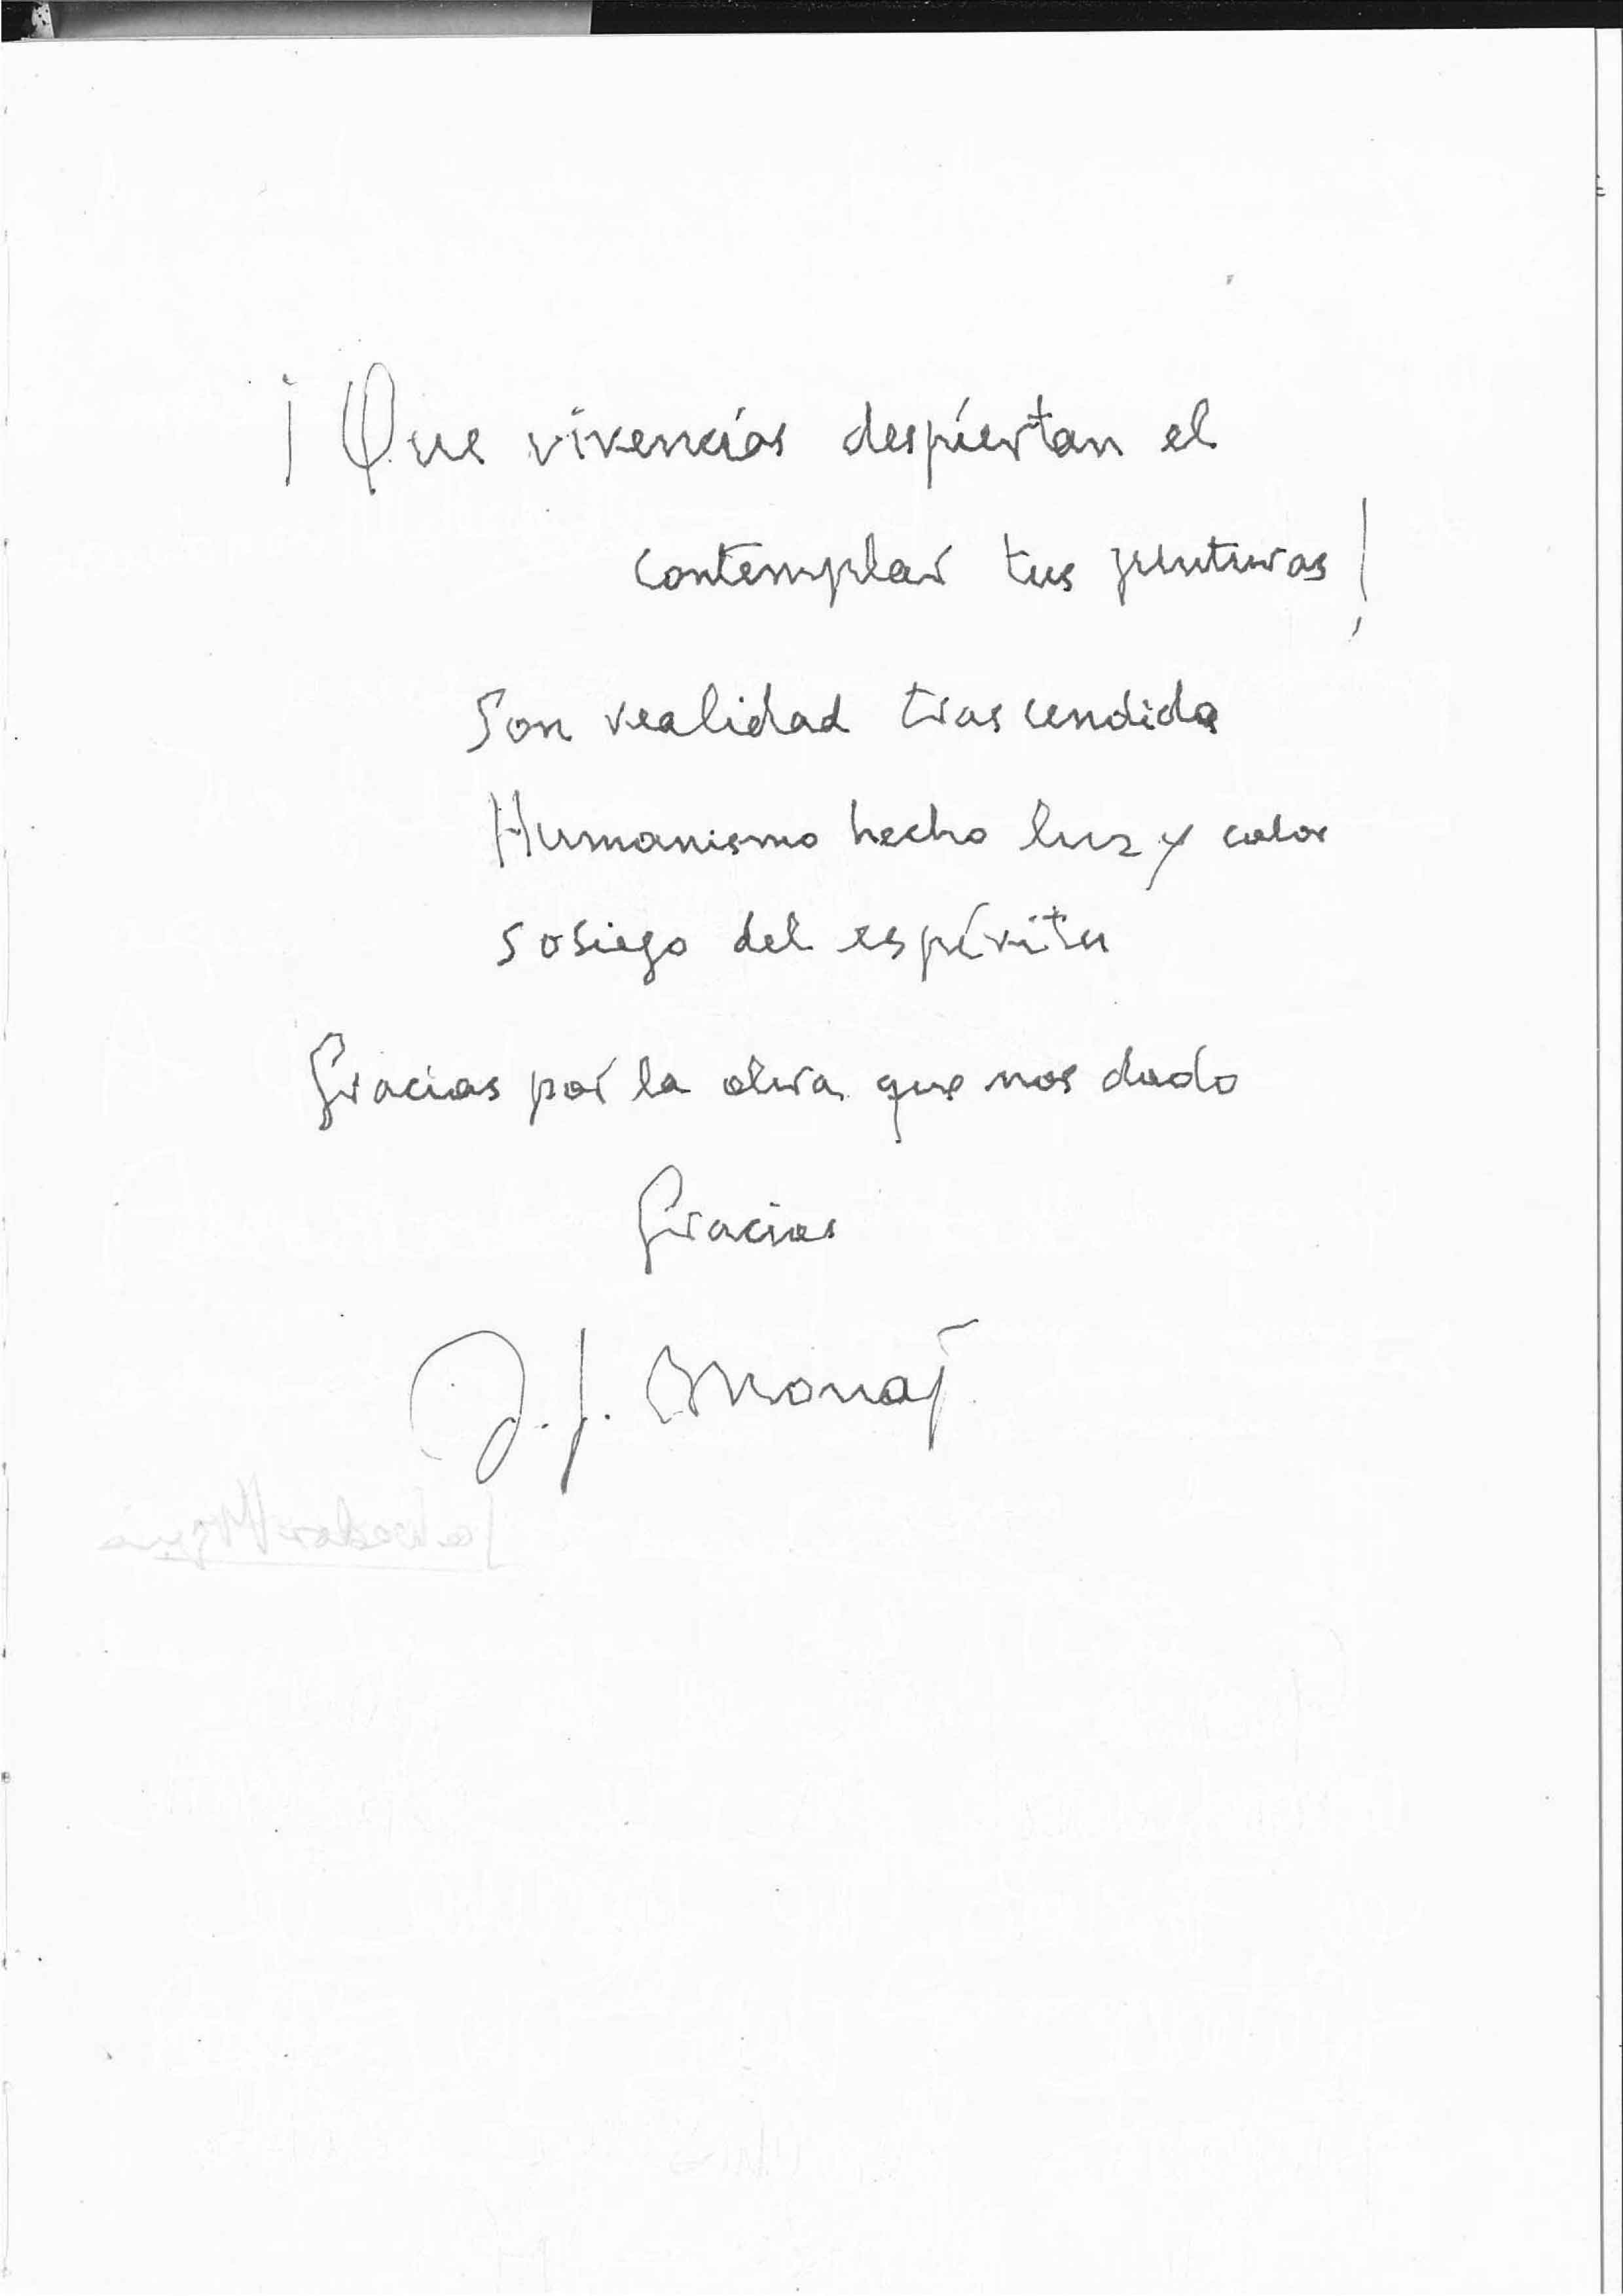 ¡Que vivencias despiertan el
contemplar tus pinturas!
Son realidad trascendida
Humanismo hecho luz y color
sosiego del espíritu
Gracias por la obra que nos dado
Gracias
J. J.